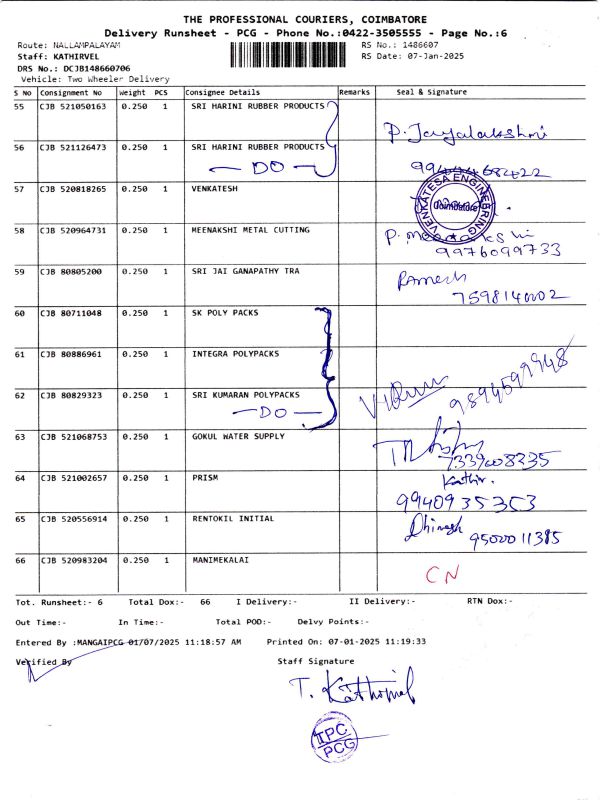 THE PROFESSIONAL COURIERS, COIMBATORE
Delivery Runsheet - PCG - Phone No.:0422-3505555 - Page No.:6
Route: NALLAMPALAYAM RS No.: 1486607
Staff: KATHIRVEL RS Date: 07-Jan-2025
DRS No.: DCJB148660706
Vehicle: Two Wheeler Delivery
S No Consignment No Weight PCS Consignee Details Remarks Seal & Signature
55 CJB 521050163 0.250 1 SRI HARINI RUBBER PRODUCTS
P. Jayalakshmi
56 CJB 521126473 0.250 1 SRI HARINI RUBBER PRODUCTS
— DO —
57 CJB 520818265 0.250 1 VENKATESH
VENKATESA ENGINEERING
Coimbatore
58 CJB 520964731 0.250 1 MEENAKSHI METAL CUTTING
P. meenakshi
9976099733
59 CJB 80805200 0.250 1 SRI JAI GANAPATHY TRA
Ramesh
7598140002
60 CJB 80711048 0.250 1 SK POLY PACKS
61 CJB 80886961 0.250 1 INTEGRA POLYPACKS
62 CJB 80829323 0.250 1 SRI KUMARAN POLYPACKS
— DO —
9894599948
63 CJB 521068753 0.250 1 GOKUL WATER SUPPLY
7339008335
64 CJB 521002657 0.250 1 PRISM
Kathir.
9940935353
65 CJB 520556914 0.250 1 RENTOKIL INITIAL
Dhinesh
9500011385
66 CJB 520983204 0.250 1 MANIMEKALAI
CN
Tot. Runsheet:- 6 Total Dox:- 66 I Delivery:- II Delivery:- RTN Dox:-
Out Time:- In Time:- Total POD:- Delvy Points:-
Entered By :MANGAIPCG 01/07/2025 11:18:57 AM Printed On: 07-01-2025 11:19:33
Verified By Staff Signature
T. Kathirvel
TPC
PCG